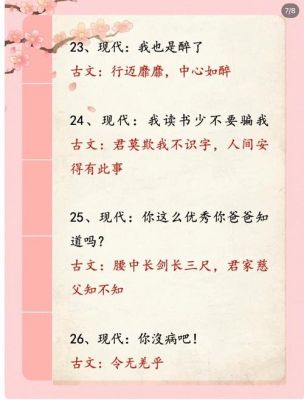 7/8
23、现代：我也是醉了
古文：行迈靡靡，中心如醉
24、现代：我读书少不要骗我
古文：君莫欺我不识字，人间安
得有此事
25、现代：你这么优秀你爸爸知
道吗？
古文：腰中长剑长三尺，君家慈
父知不知
26、现代：你沒病吧！
古文：令无羌乎